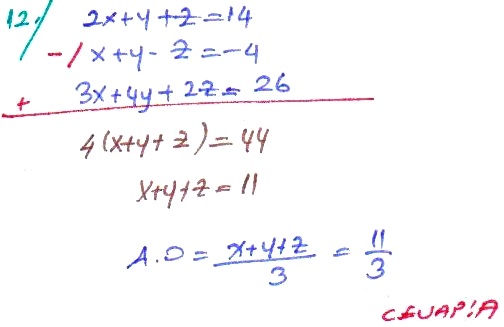 12./ 2x+y+z=14
-/ x+y-z=-4
+ 3x+4y+2z=26
4(x+y+z)=44
x+y+z=11
A.O = x+y+z/3 = 11/3
CEVAP:A